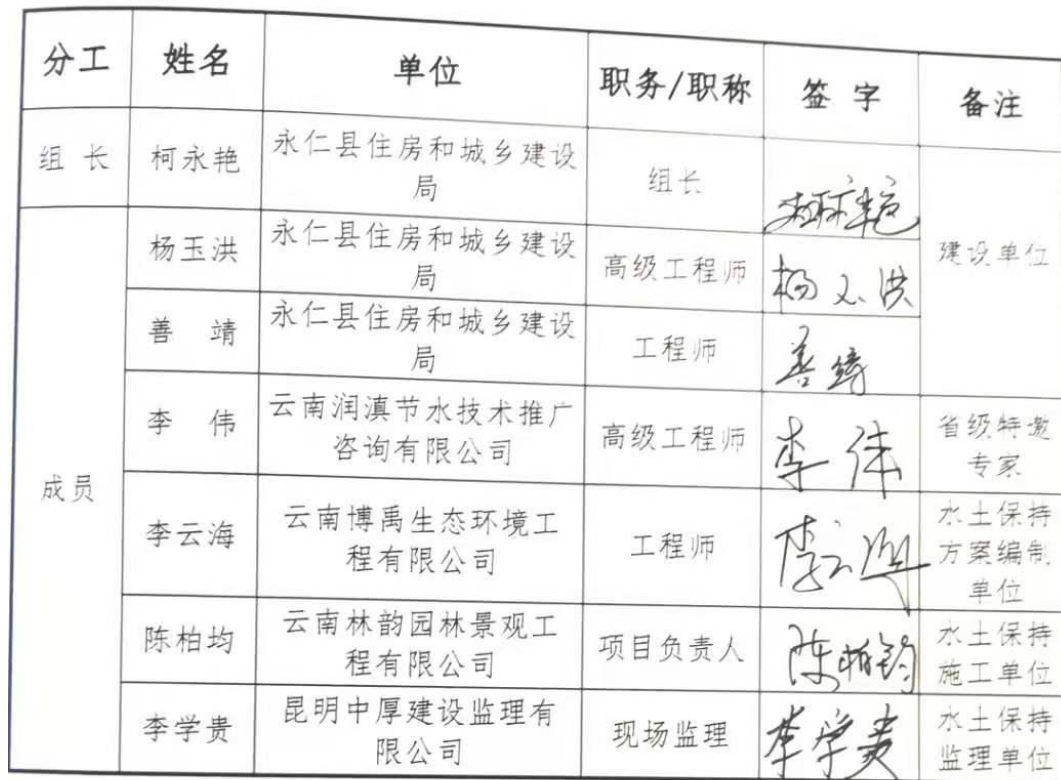 分工 姓名 单位 职务/职称 签字 备注
组长 柯永艳 永仁县住房和城乡建设
局 组长 柯永艳 建设单位
成员 杨玉洪 永仁县住房和城乡建设
局 高级工程师 杨玉洪
善靖 永仁县住房和城乡建设
局 工程师 善靖
李伟 云南润滇节水技术推广
咨询有限公司 高级工程师 李伟 省级特邀
专家
李云海 云南博禹生态环境工
程有限公司 工程师 李云海 水土保持
方案编制
单位
陈柏均 云南林韵园林景观工
程有限公司 项目负责人 陈柏钧 水土保持
施工单位
李学贵 昆明中厚建设监理有
限公司 现场监理 李学贵 水土保持
监理单位